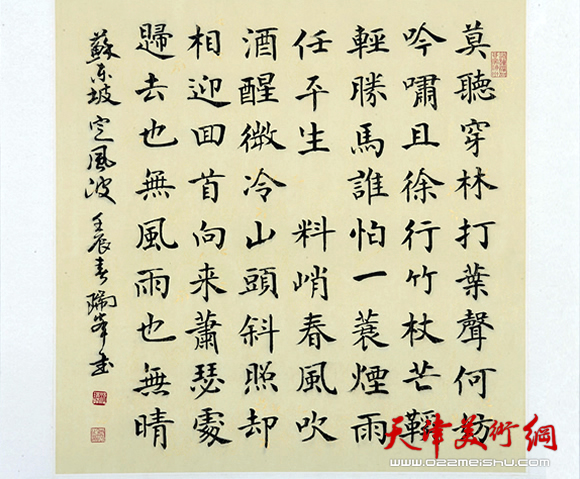 莫聽穿林打葉聲何妨
吟嘯且徐行竹杖芒鞵
輕勝馬誰怕一蓑煙雨
任平生 料峭春風吹
酒醒微冷山頭斜照却
相迎回首向来蕭瑟處
歸去也無風雨也無晴
蘇东坡定風波 壬辰春 瑞峯書
天津美術網
www.022meishu.com